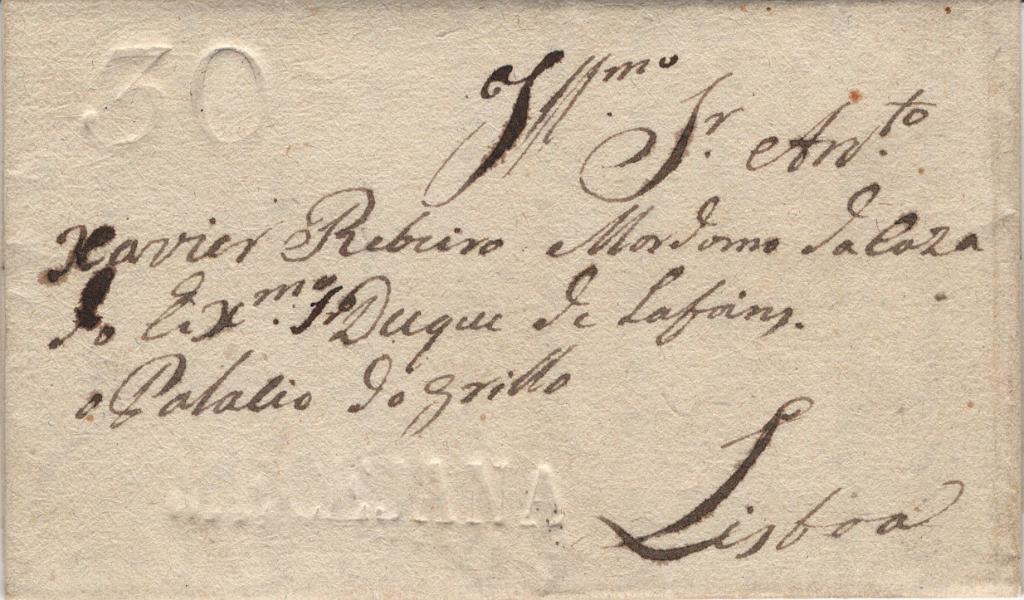 30
Illmo. Sr. Anto.
Xavier Rebeiro Mordomo da Caza
do Exmo. Sr Duque de Lafoins.
o Palacio do grillo
Lisboa